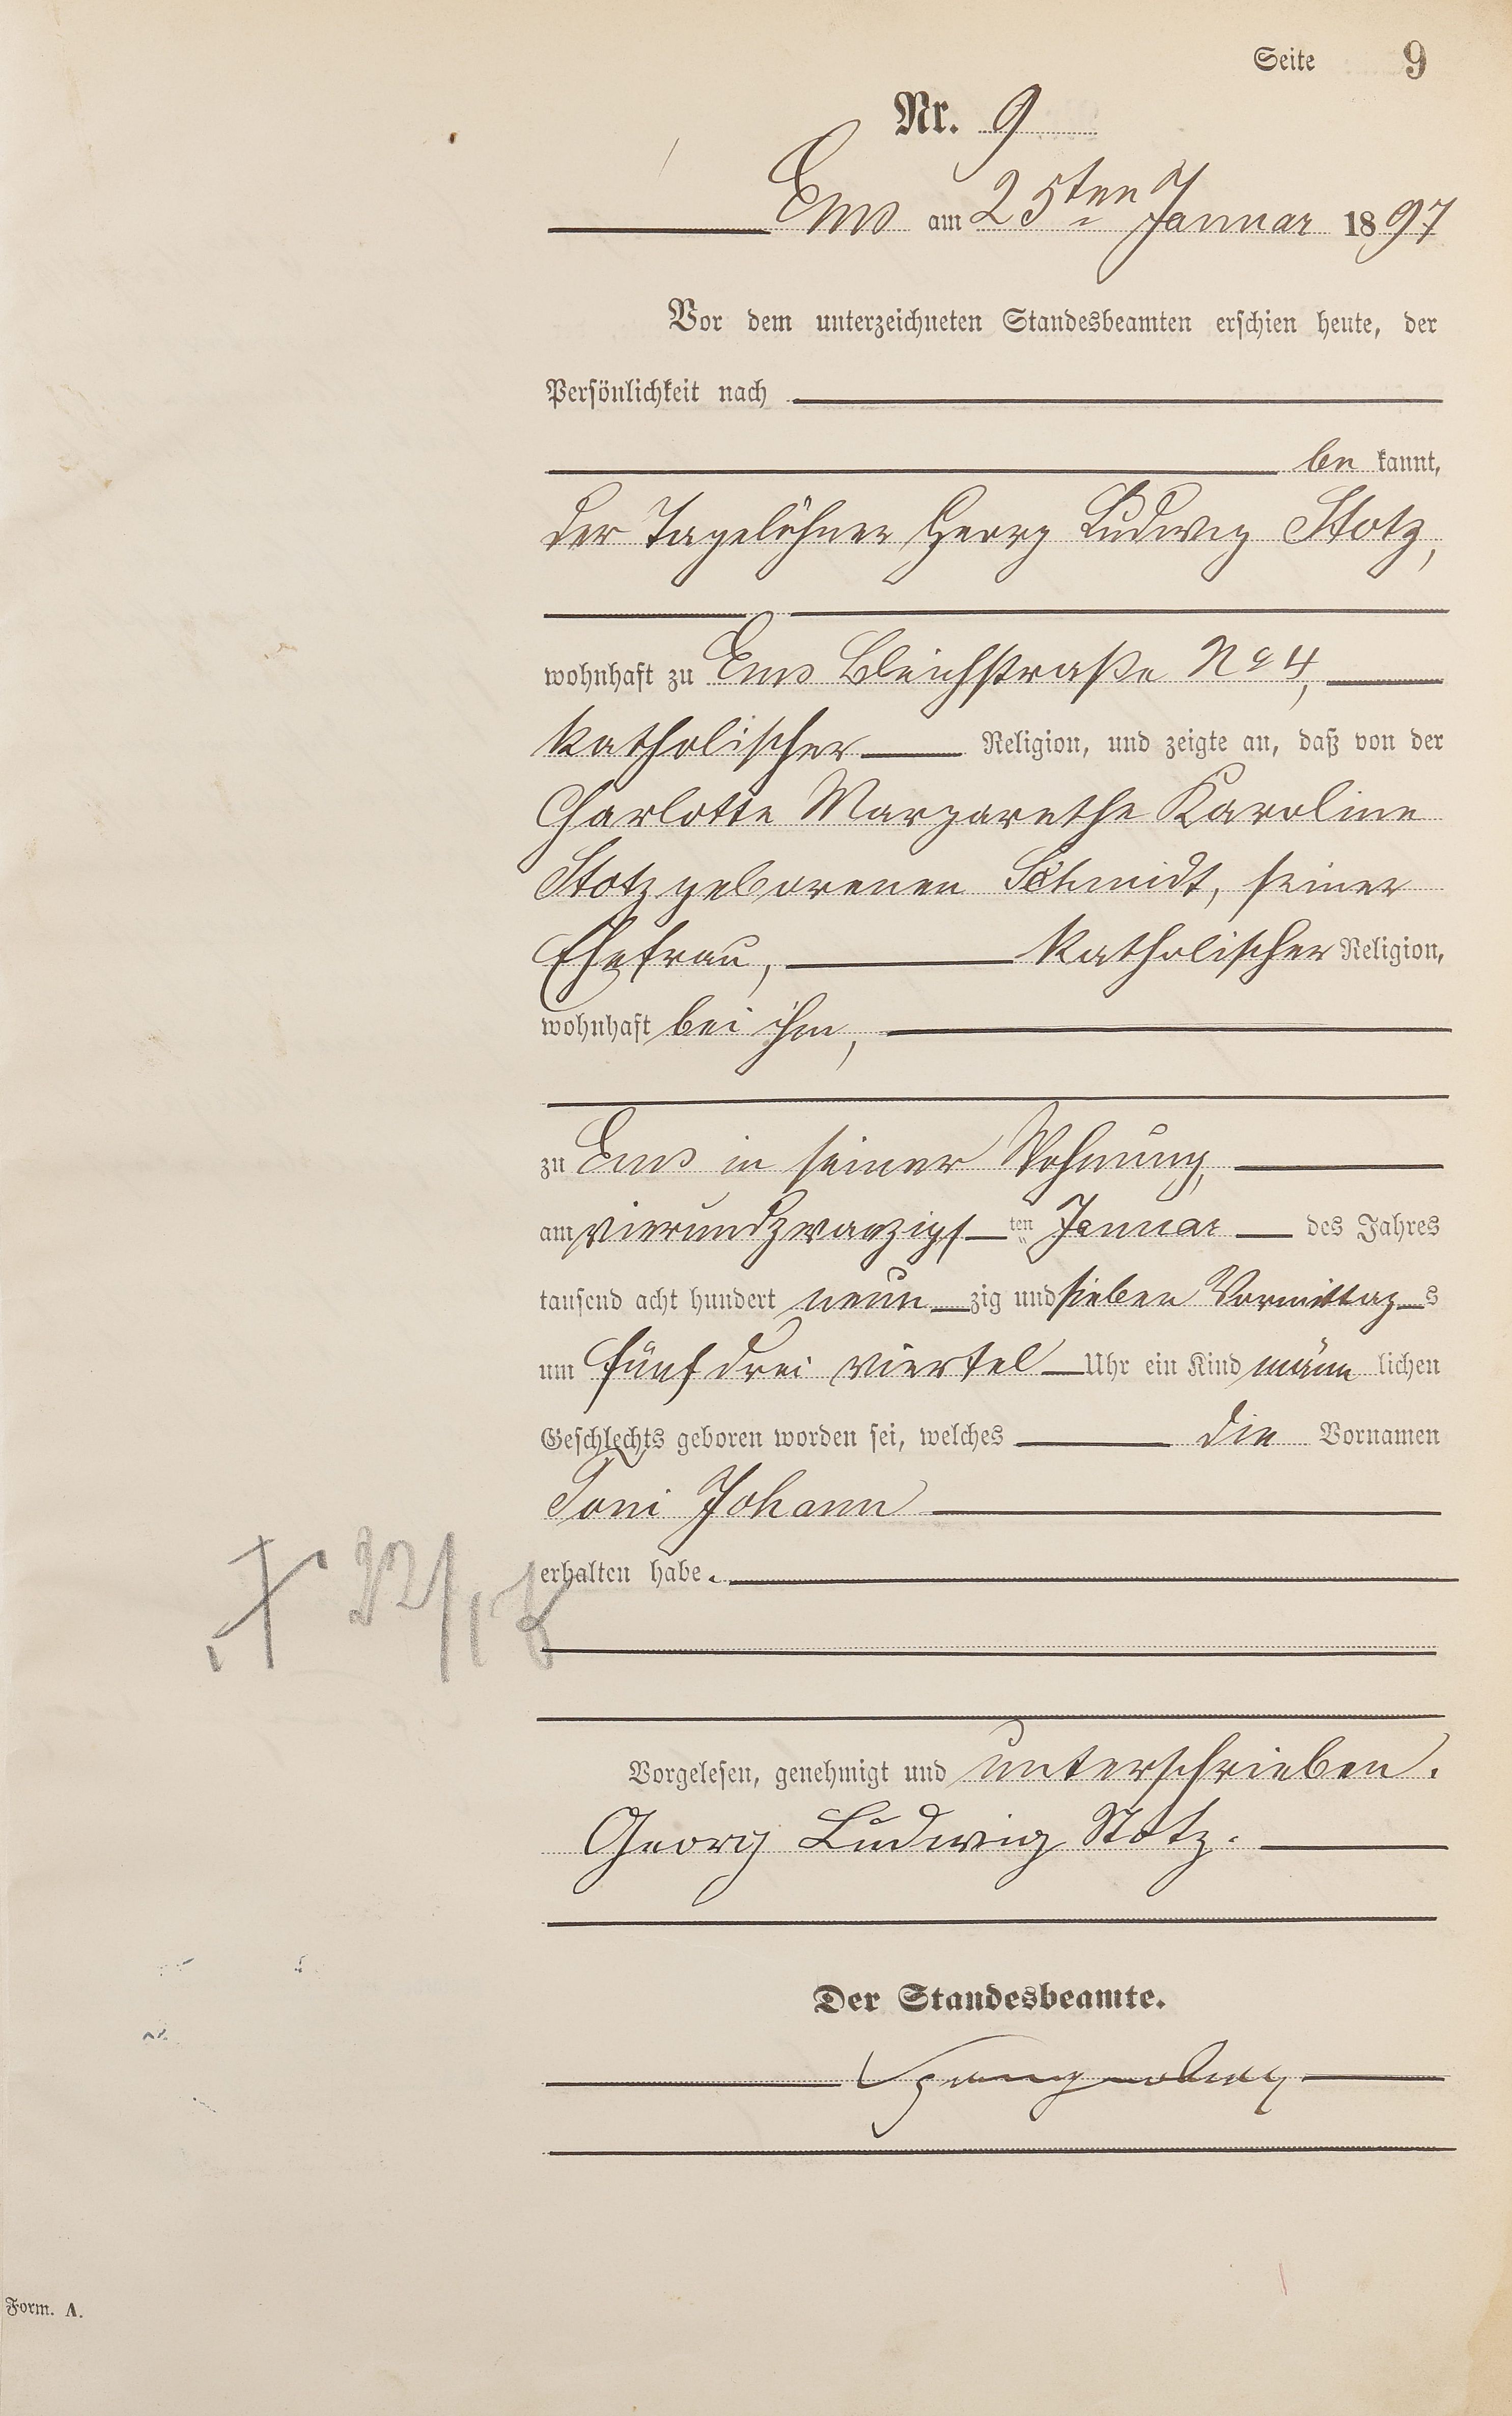 Seite 9
Nr. 9
Ems am 25ten Januar 1897
Vor dem unterzeichneten Standesbeamten erschien heute, der
Persönlichkeit nach
be kannt,
der Tagelöhner Georg Ludwig Stotz,
wohnhaft zu Ems Bleichstraße No 4,
katholischer Religion, und zeigte an, daß von der
Charlotte Margarethe Karoline
Stotz geborenen Schmidt, seiner
Ehefrau, katholischer Religion,
wohnhaft bei ihm,
zu Ems in seiner Wohnung,
am vierundzwanzigs ten Januar des Jahres
tausend acht hundert neun zig und sieben Vormittag s
um fünf drei viertel Uhr ein Kind männ lichen
Geschlechts geboren worden sei, welches die Vornamen
Toni Johann
erhalten habe.
22/1
Vorgelesen, genehmigt und unterschrieben.
Georg Ludwig Stotz.
Der Standesbeamte.
Form. A.